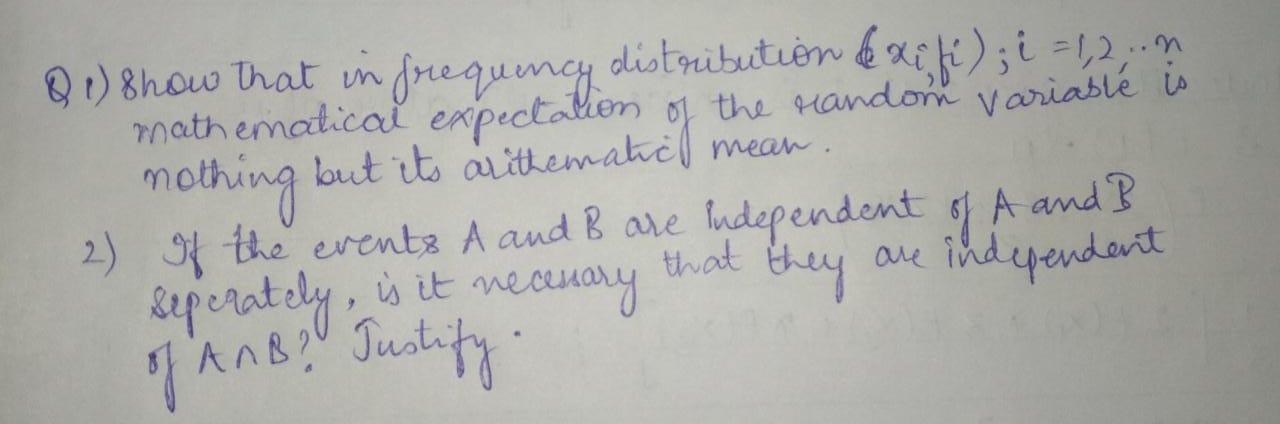 Q 1) Show that in frequency distribution (xi, fi) ; i = 1,2,..n
mathematical expectation of the random variable is
nothing but its arithematic mean.
2) If the events A and B are Independent of A and B
seperately, is it necessary that they are independent
of A∩B? Justify.